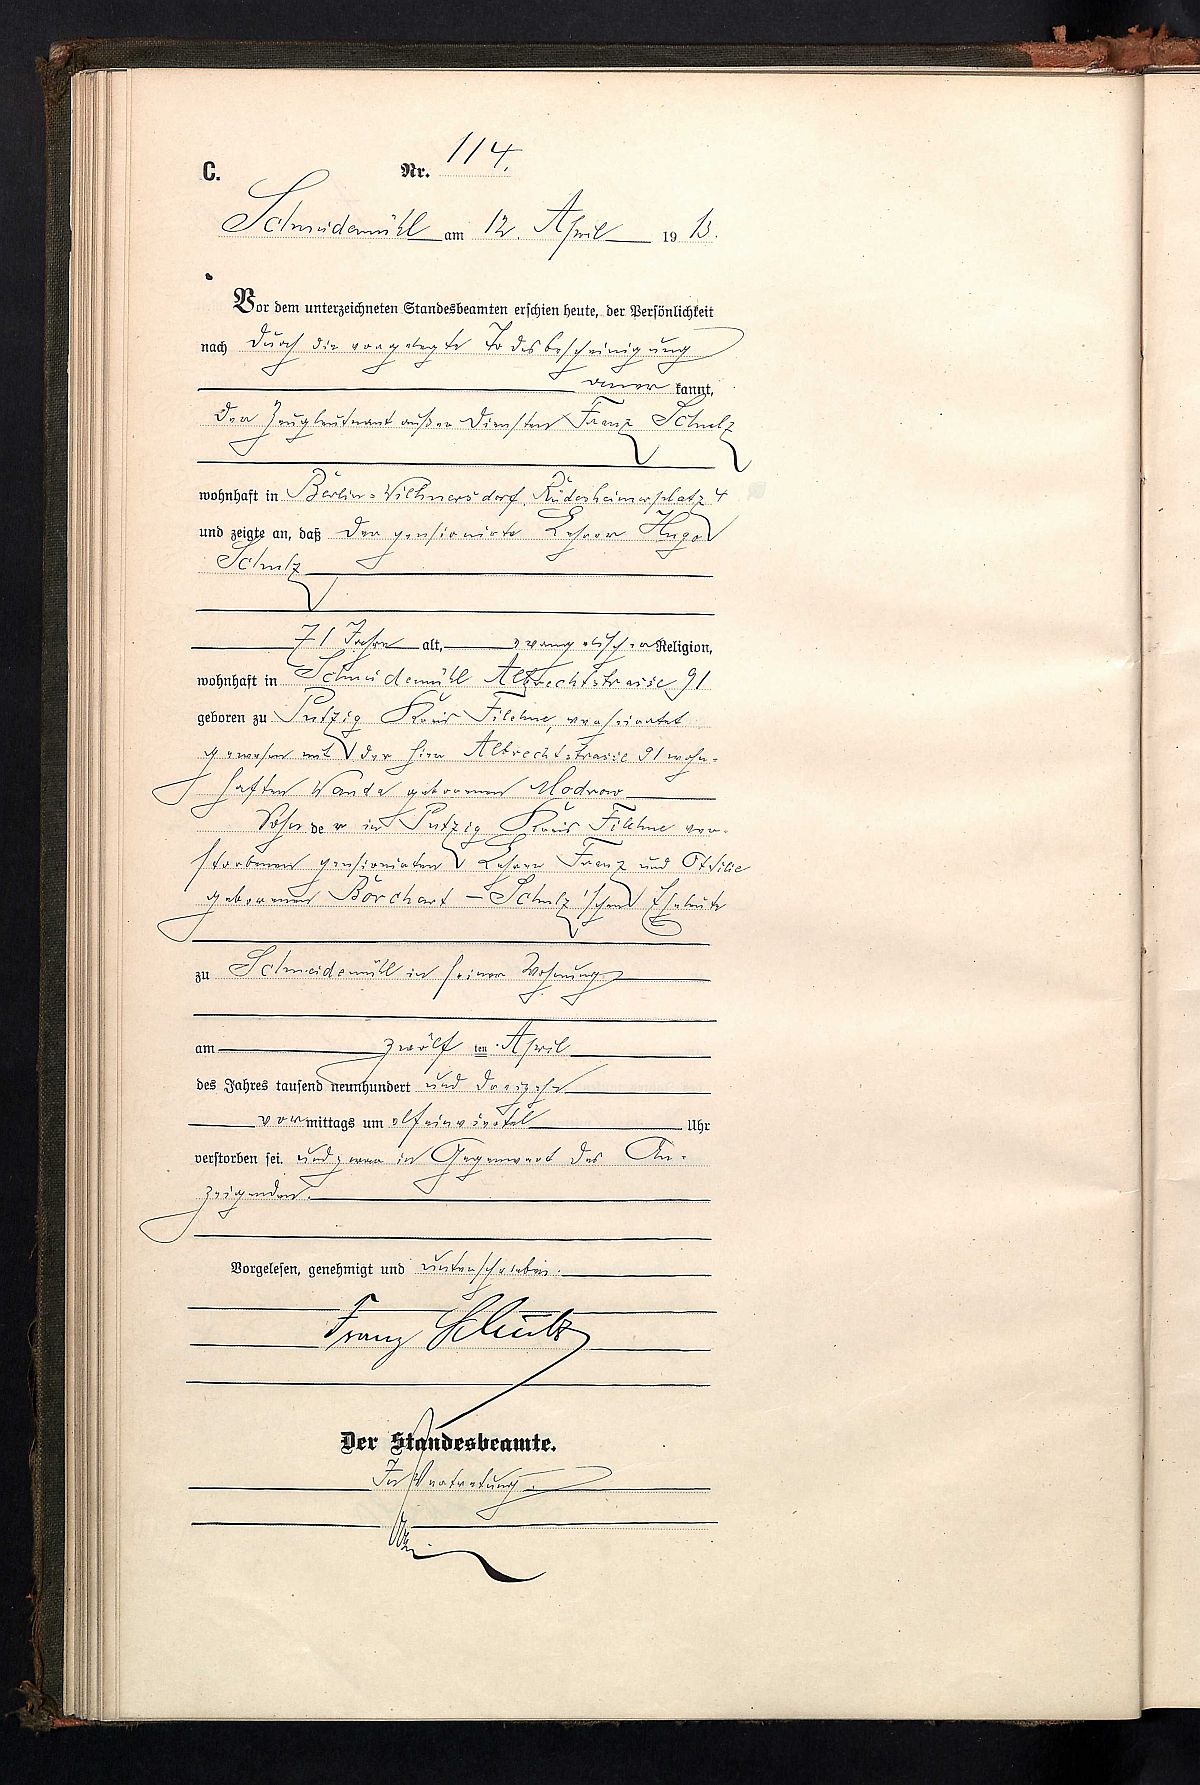 C.
Nr. 114.
Schneidemühl am 12. April 1913.
Vor dem unterzeichneten Standesbeamten erschien heute, der Persönlichkeit
nach durch die vorgelegte Todesbescheinigung
anerkannt,
der Zeugleutnant außer Diensten Franz Schulz
wohnhaft in Berlin-Wilmersdorf, Rüdesheimerplatz 4
und zeigte an, daß der pensionirte Lehrer Hugo
Schulz
71 Jahre alt, evangelischer Religion,
wohnhaft in Schneidemühl Albrechtstrasse 91
geboren zu Putzig Kreis Filehne, verheiratet
gewesen mit der hier Albrechtstrasse 91 wohn-
haften Wanda geborenen Modrow
Sohn der in Putzig Kreis Filehne ver-
storbenen pensionirten Lehrer Franz und Ottilie
geborenen Borchart - Schulz'schen Eheleute
zu Schneidemühl in seiner Wohnung
am zwölf ten April
des Jahres tausend neunhundert und dreizehn
vormittags um elfeinviertel Uhr
verstorben sei. und zwar in Gegenwart des An-
zeigenden.
Vorgelesen, genehmigt und unterschrieben.
Franz Schulz
Der Standesbeamte.
In Vertretung.